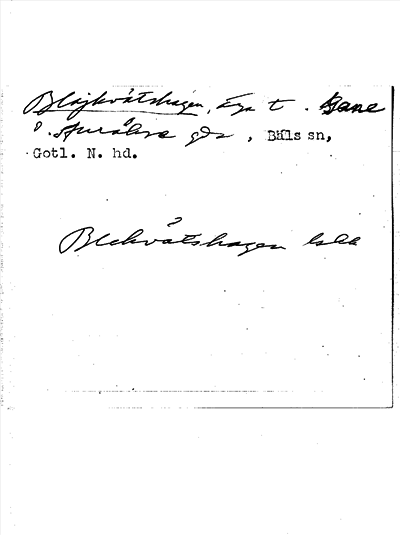 Blajkvåtshagen, äga t. Gane
o. Sturåkre gdr, Bäls sn,
Gotl. N. hd.
Blekvåtshagen